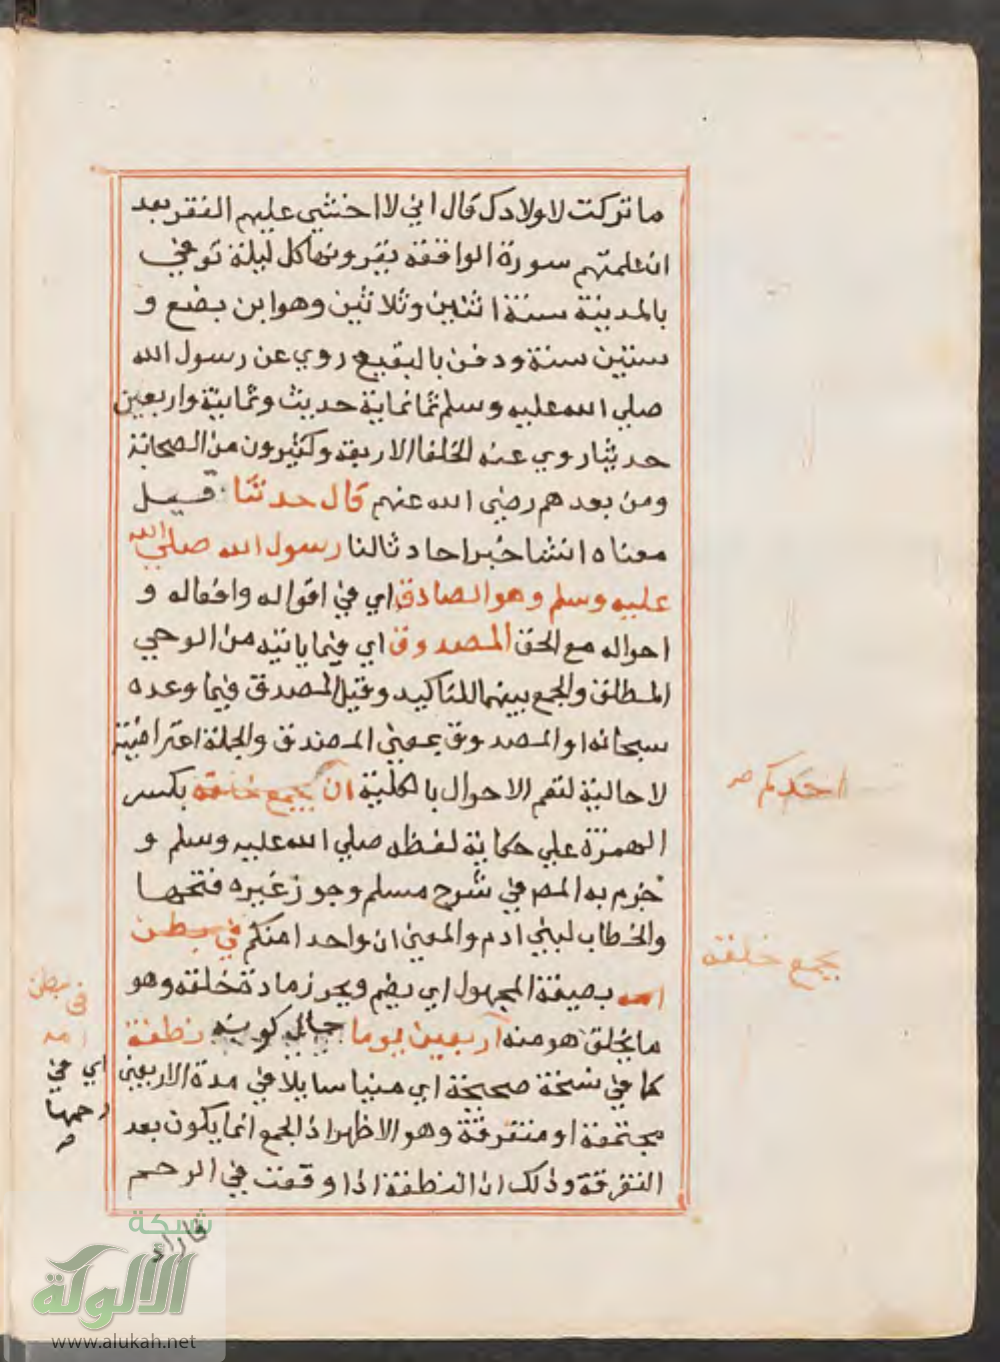 ما تركت لاولادك قال اني لا اخشي عليهم الفقر بعد
ان علمتهم سورة الواقعة يقرونها كل ليلة توفي
بالمدينة سنة اثنين وثلاثين وهو ابن بضع و
ستين سنة ودفن بالبقيع روي عن رسول الله
صلي الله عليه وسلم ثمانماية حديث وثمانية واربعين
حديثا روي عنه الخلفا الاربعة وكثيرون من الصحابة
ومن بعدهم رضي الله عنهم قال حدثنا قيل
معناه انشا خبرا حادثا لنا رسول الله صلي الله
عليه وسلم وهو الصادق اي في اقواله وافعاله و
احواله مع الحق المصدوق اي فيما ياتيه من الوحي
المطلق والجمع بينهما للتاكيد وقيل المصدق فيما وعده
سبحانه او المصدوق بمعني المصدق والجملة اعتراضية
لا حالية لتعم الاحوال بالكلية ان يجمع خلقه بكسر
الهمزة علي حكاية لفظه صلي الله عليه وسلم و
جزم به المص في شرح مسلم وجوز غيره فتحها
والخطاب لبني ادم والمعني ان واحدا منكم في بطن
امه بصيغة المجهول اي يضم ويحرز مادة خلقه وهو
ما يخلق هو منه اربعين يوما حال كونه نطفة
كما في نسخة صحيحة اي منيا سايلا في مدة الاربعين
مجتمعة او متفرقة وهو الاظهر اذ الجمع انما يكون بعد
التفرقة وذلك ان النطفة اذا وقعت في الرحم
فاراد
احدكم صح
يجمع خلقه
في بطن
امه
اي في
رحمها
صح
شبكة
الألوكة
www.alukah.net